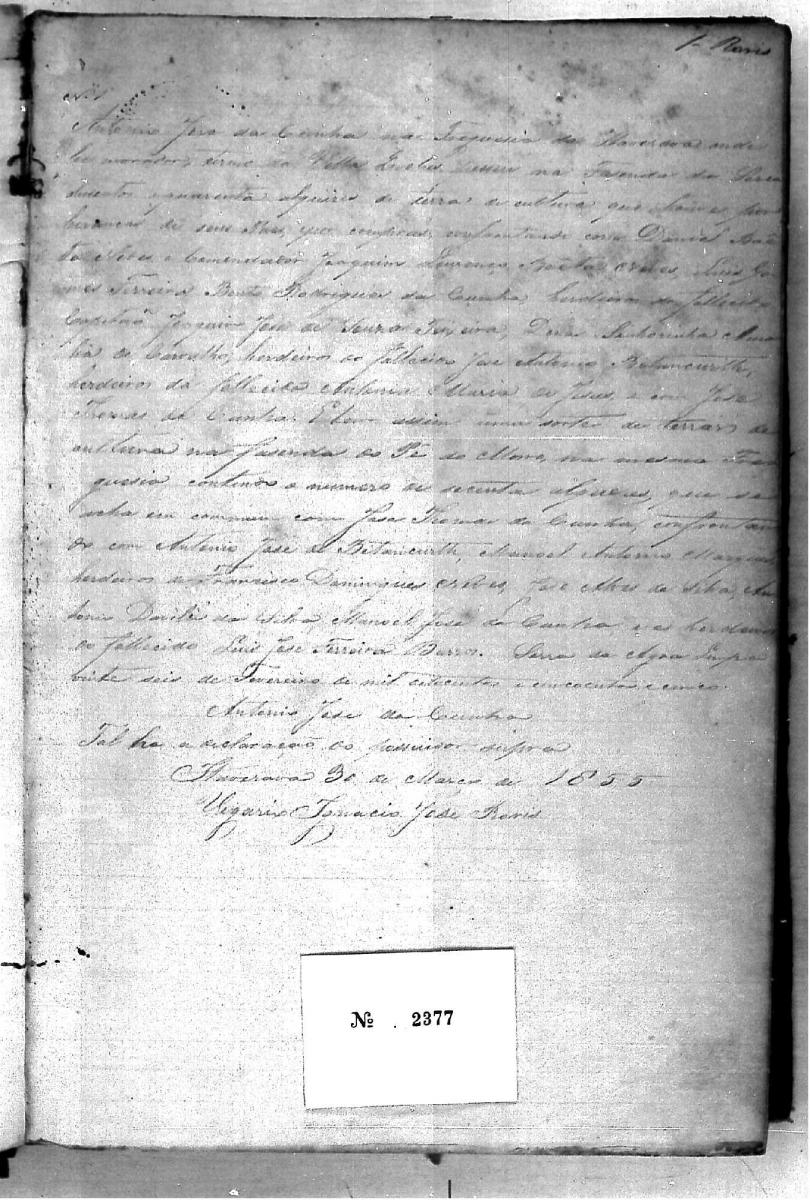 1- Reris
N. 1
Antonio Jose da Cunha na Freguesia da Itaverava onde
he morador, termo da Villa possue na Fazenda da Serra
duzentos e quarenta alqueires de terra de cultura que houve por
herança de seus Pais, que compras, confrontando com Daniel Baê
ta Neves e Comendador Joaquim Lourenço Baêta Neves, Luis Go
mes Ferreira Bento Rodrigues da Cunha, herdeiros do fallecido
Capitaõ Joaquim Jose de Souza Teixeira, Dona Senhorinha
de Carvalho, herdeiros do fallecido Jose Antonio Betancurth,
herdeiros da fallecida Antonia Maria de Jesus, e com Jose
Thomas da Cunha. E bem assim uma sorte de terras de
cultura na fasenda do Pé do Morro, na mesma Fre
guesia contendo o numero de secenta alqueres, que se
acha em commum com Jose Thomas da Cunha, confrontan
do com Antonio Jose de Betancurth, Manoel Antonio Marques,
herdeiros de Francisco Domingues Neves, Jose Alves da Silva, An
tonio da Silva, Manoel José da Cunha, e os herdeiros
do fallecido Luis Jose Ferreira Barros. Serra da Agoa Limpa
vinte seis de Fevereiro de mil oitocentos e cincoenta e cinco.
Antonio Jose da Cunha
Tal he a declaração do possuidor supra
Itaverava 30 de Março de 1855
Vigario Ignacio José
Nº . 2377